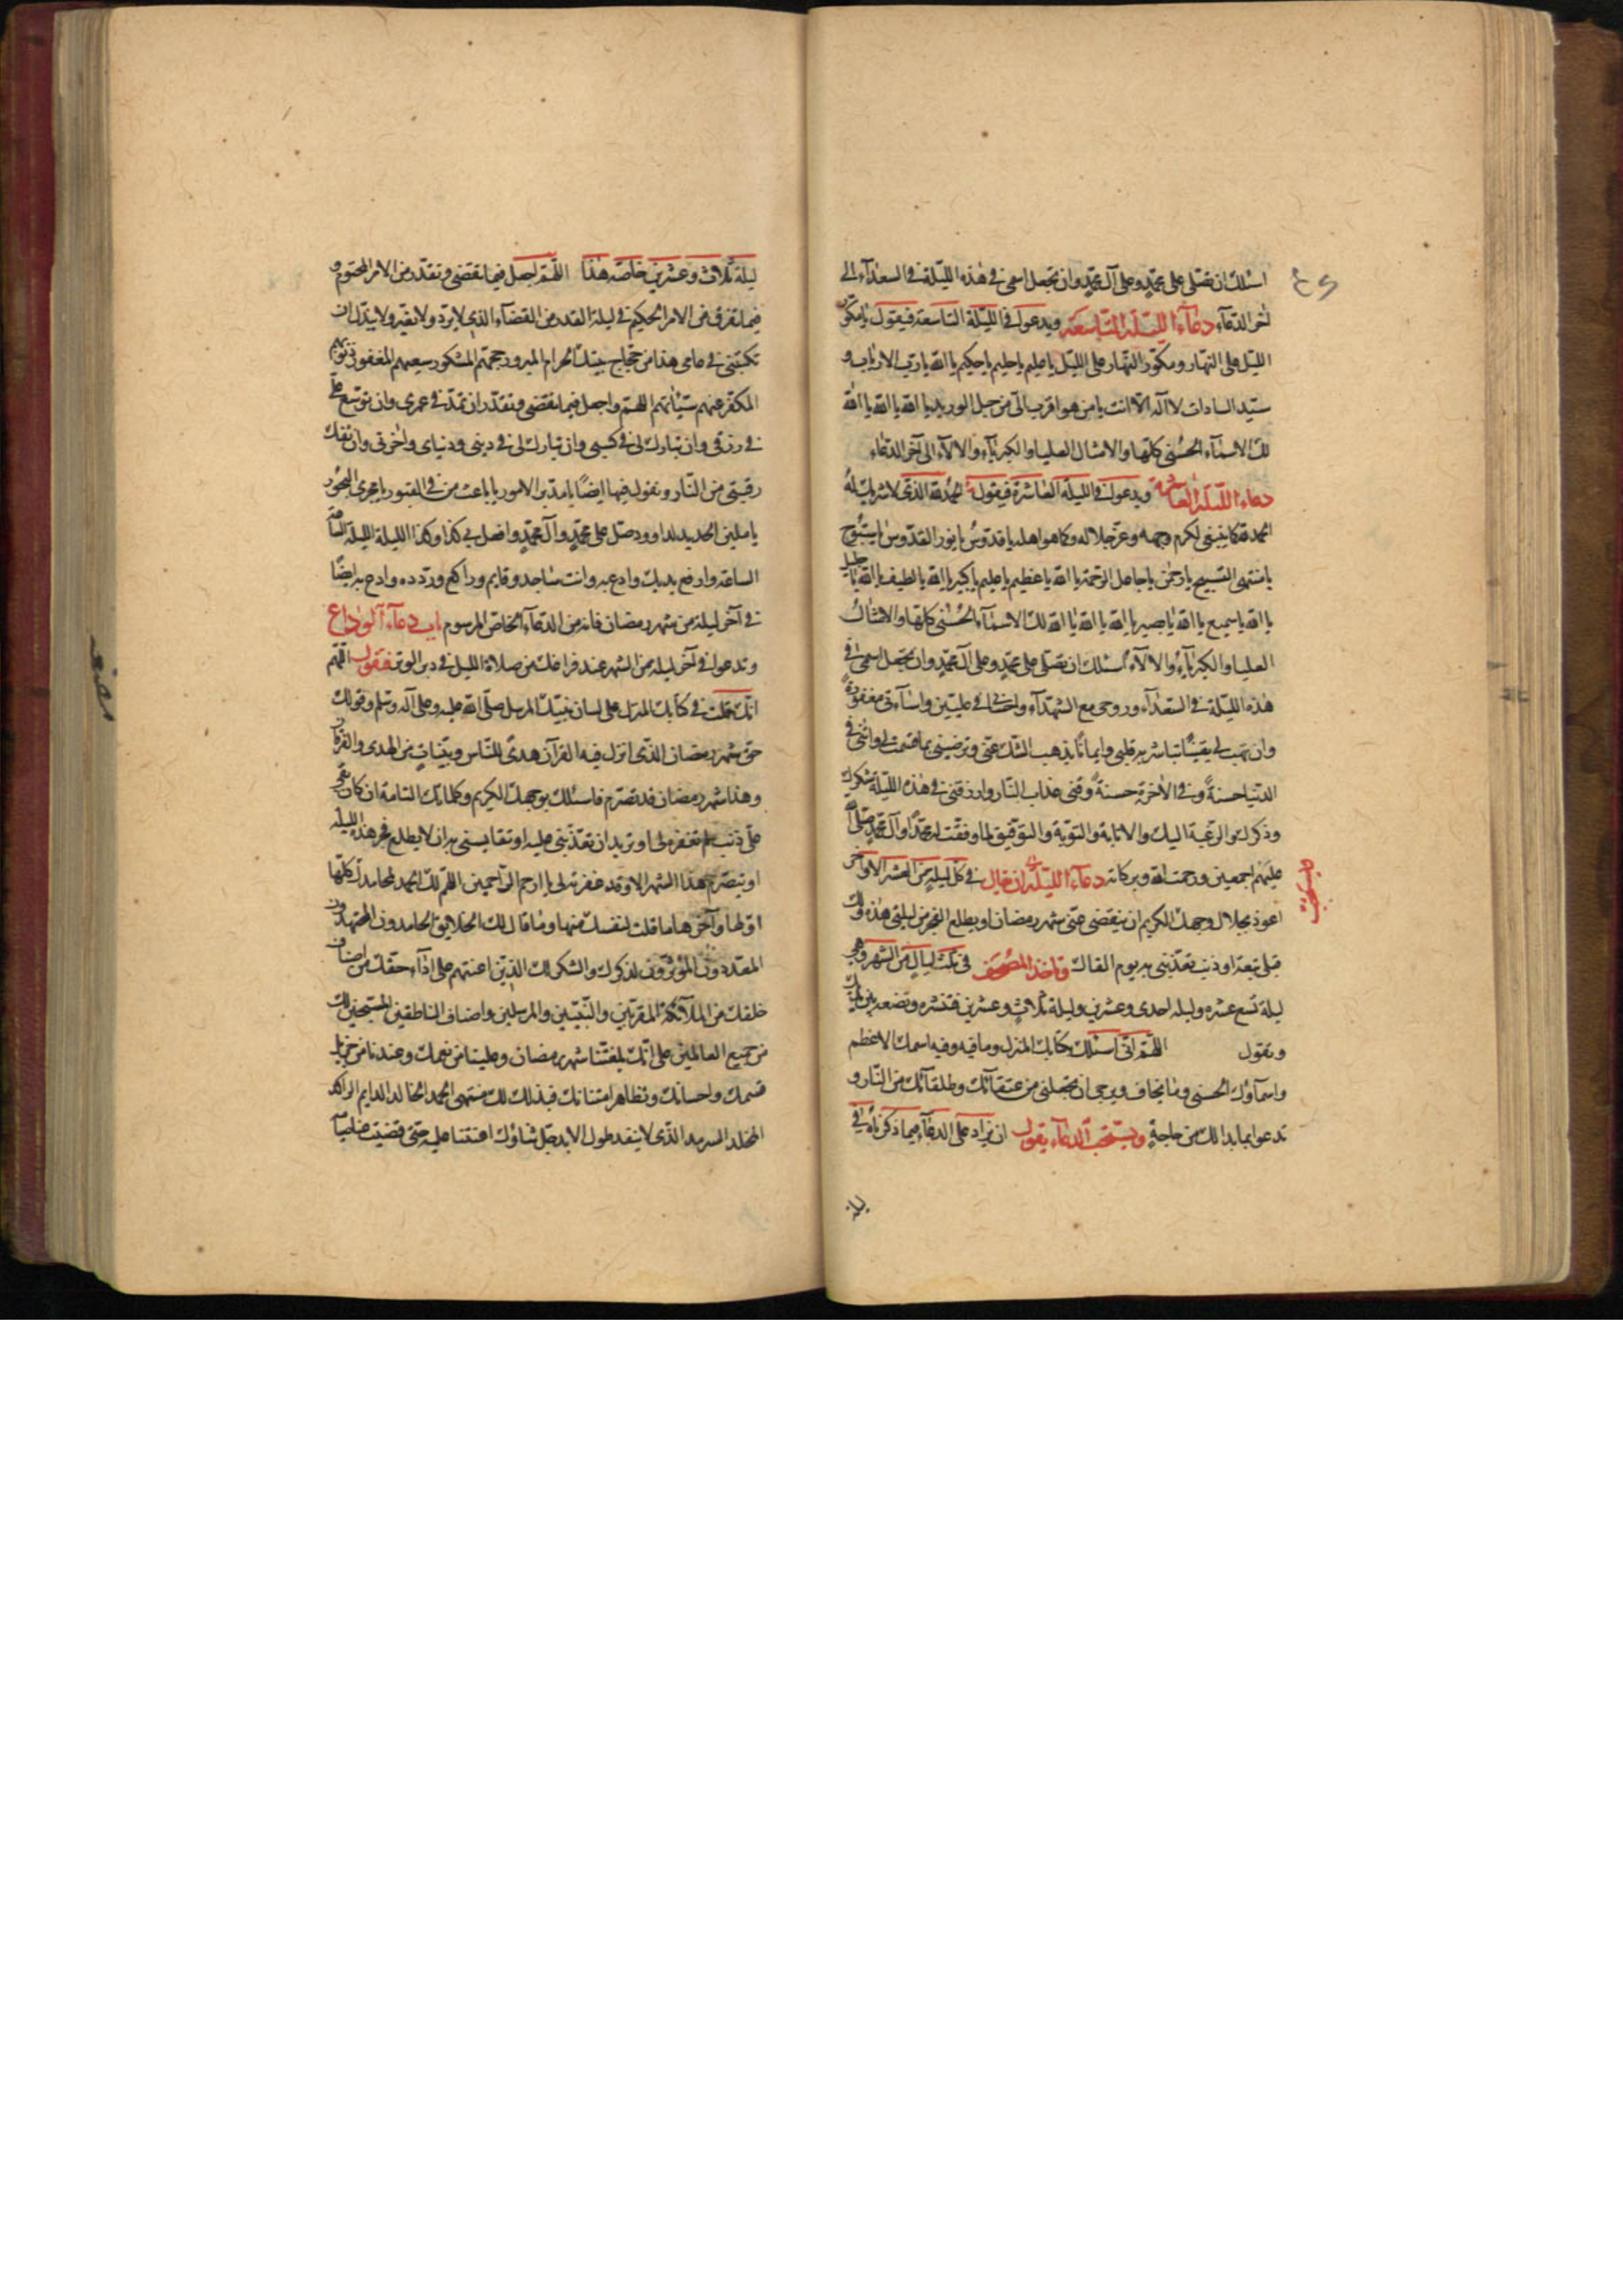 اسئلك ان تصلی علی محمد وعلی آل محمد وان تجعل اسمی فی هذه اللیلة فی السعدآء الی
آخر الدعآء دعآء اللیلة التاسعة ویدعوا فی اللیلة التاسعة فیقول یا مکور
اللیل علی النهار ومکور النهار علی اللیل یا علیم یا حلیم یا حکیم یا الله یا رب الارباب و
سید السادات لا اله الا انت یا من هو اقرب الی من حبل الورید یا الله یا الله یا الله
لك الاسمآء الحسنی کلها والامثال العلیا والکبریآء والالآء الی آخر الدعاء
دعاء اللیلة العاشرة ویدعوا فی اللیلة العاشرة فیقول الحمد لله الذی لا شریك له
الحمد لله کما ینبغی لکرم وجهه وعز جلاله وکما هو اهله یا قدوس یا نور القدوس یا سبوح
یا منتهی التسبیح یا رحمن یا جاعل الرحمة یا الله یا عظیم یا علیم یا کبیر یا الله یا لطیف یا الله یا جلیل
یا الله یا سمیع یا الله یا بصیر یا الله یا الله یا الله لك الاسمآء الحسنی کلها والامثال
العلیا والکبریآء والالآء اسئلك ان تصلی علی محمد وعلی آل محمد وان تجعل اسمی فی
هذه اللیلة فی السعدآء وروحی مع الشهدآء واحسانی فی علیین واسآءتی مغفورة
وان تهب لی یقینا تباشر به قلبی وایمانا یذهب الشك عنی وترضینی بما قسمت لی واتنی فی
الدنیا حسنة وفی الآخرة حسنة وقنی عذاب النار وارزقنی فی هذه اللیلة شکرك
وذکرك والرغبة الیك والانابة والتوبة والتوفیق لما وفقت له محمدا وآل محمد صلی الله
علیهم اجمعین ورحمت الله وبرکاته دعآء اللیلة ان یقال فی کل لیلة من العشر الاواخر
اعوذ بجلال وجهك الکریم ان ینقضی عنی شهر رمضان او یطلع الفجر من لیلتی هذه ولك
قبلی تبعة او ذنب تعذبنی به یوم القاك وتاخذ المصحف فی ثلث لیال من الشهر وهی
لیلة تسع عشره ولیله احدی وعشرین ولیلة ثلاث وعشرین فتنشره وتضعه بین یدیك
وتقول اللهم انی اسئلك بکتابك المنزل وما فیه وفیه اسمك الاعظم
واسمآؤك الحسنی وما یخاف ویرجی ان تجعلنی من عتقآئك وطلقآئك من النار و
تدعوا بما بدا لك من حاجة ویستحب الدعآء یقول ان یزاد علی الدعآء فیما ذکرناه فی
لیلة ثلاث وعشرین خاصة هذا اللهم اجعل فیما تقضی وتقدر من الامر المحتوم و
فیما تفرق من الامر الحکیم فی لیلة القدر من القضآء الذی لا یرد ولا یغیر ولا یبدل ان
تکتبنی فی عامی هذا من حجاج بیتك الحرام المبرور حجهم المشکور سعیهم المغفور ذنوبهم
المکفر عنهم سیئاتهم اللهم واجعل فیما تقضی وتقدر ان تمد فی عمری وان توسع علی
فی رزقی وان تبارك لی فی کسبی وان تبارك لی فی دینی ودنیای وآخرتی وان تفك
رقبتی من النار وتقول فیها ایضا یا مدبر الامور یا باعث من فی القبور یا مجری البحور
یا ملین الحدید لداوود صل علی محمد وآل محمد وافعل بی کذا وکذا اللیلة اللیله الساعة
الساعة وارفع یدیك وادع به وانت ساجد وقایم وراکع وردده وادع به ایضا
فی آخر لیلة من شهر رمضان فانه من الدعآء الخاص المرسوم باب دعآء الوداع
وتدعوا فی آخر لیله من الشهر عند فراغك من صلاة اللیل فی دبر الوتر فتقول اللهم
انك قلت فی کتابك المنزل علی لسان نبیك المرسل صلی الله علیه وعلی آله وسلم وقولك
حق شهر رمضان الذی انزل فیه القرآن هدی للناس وبینات من الهدی والفرقان
وهذا شهر رمضان قد تصرم فاسئلك بوجهك الکریم وکلماتك التامة ان کان بقی
علی ذنب لم تغفره لی او ترید ان تعذبنی علیه او تقایسنی به ان لا یطلع فجر هذه اللیله
او یتصرم هذا الشهر الا وقد غفرته لی یا ارحم الراحمین اللهم لك الحمد بمحامدك کلها
اولها وآخرها ما قلت لنفسك منها وما قال لك الخلایق الحامدون المجتهدون
المعددون المؤثرون لذکرك والشکر لك الذین اعنتهم علی ادآء حقك من اصناف
خلقك من الملآئکة المقربین والنبیین والمرسلین واصناف الناطقین المسبحین لك
من جمیع العالمین علی انك بلغتنا شهر رمضان وعلینا من نعمك وعندنا من جزیل
قسمك واحسانك وتظاهر امتنانك فبذلك لك منتهی الحمد الخالد الدایم الراکد
المخلد السرمد الذی لا ینفد طول الابد جل ثناؤك اعنتنا علیه حتی قضیت عنا صیامه